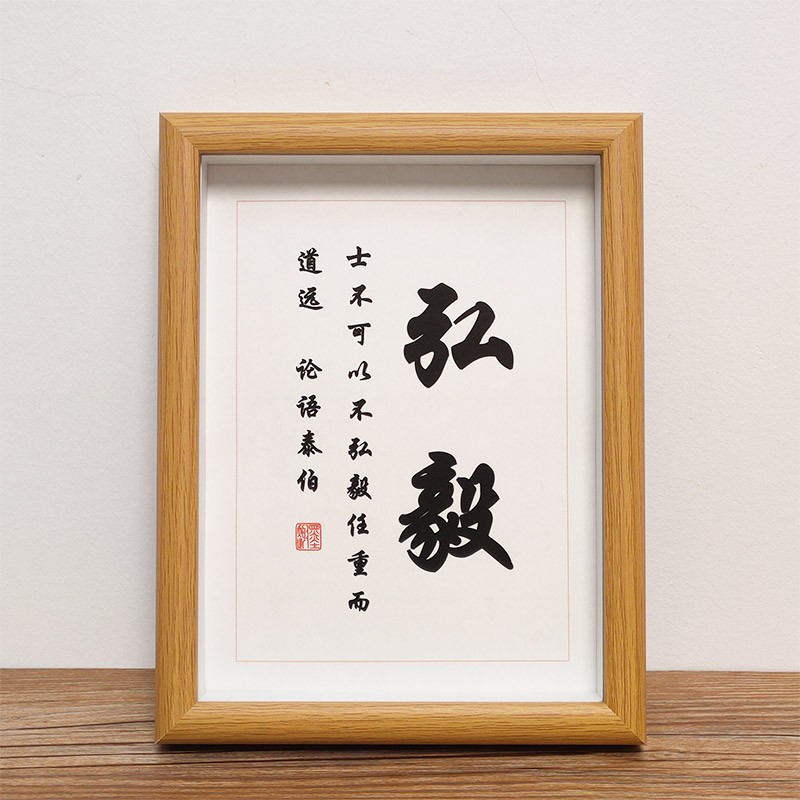 弘毅
士不可以不弘毅任重而
道远 论语泰伯